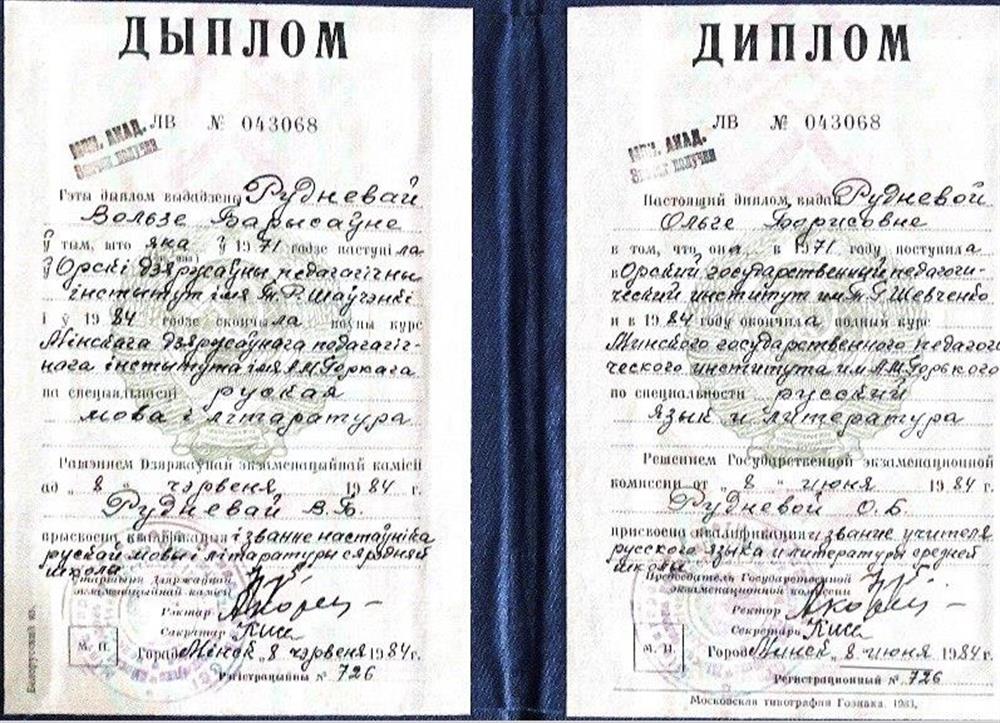 ДЫПЛОМ
ЛВ № 043068
Гэты дыплом выдадзены Рудневай
Вользе Барысаўне
ў тым, што яна ў 1971 годзе паступіла
ў Орскі дзяржаўны педагагічны
інстытут імя Т.Р. Шаўчэнкі
і ў 1984 годзе скончыла поўны курс
Мінскага дзяржаўнага педагагіч-
нага інстытута імя А.М. Горкага
па спецыяльнасці руская
мова і літаратура
Рашэннем Дзяржаўнай экзаменацыйнай камісіі
ад „ 8 “ чэрвеня 1984 г.
Рудневай В.Б.
прысвоена кваліфікацыя і званне настаўніка
рускай мовы і літаратуры сярэдняй
школы
Старшыня Дзяржаўнай
экзаменацыйнай камісіі
Рэктар
Сакратар
М. П.
Горад Мінск „ 8 чэрвеня 1984 г.
Рэгістрацыйны № 726
ДИПЛОМ
ЛВ № 043068
Настоящий диплом выдан Рудневой
Ольге Борисовне
в том, что она в 1971 году поступила
в Орский государственный педагоги-
ческий институт им. Т.Г. Шевченко
и в 1984 году окончила полный курс
Минского государственного педагоги
ческого института им. А.М. Горького
по специальности русский
язык и литература
Решением Государственной экзаменационной
комиссии от „ 8 “ июня 1984 г.
Рудневой О.Б.
присвоена квалификация и звание учителя
русского языка и литературы средней
школы
Председатель Государственной
экзаменационной комиссии
Ректор
Секретарь
М. П.
Город Минск „ 8 июня 1984 г.
Регистрационный № 726
Московская типография Гознака. 1983.